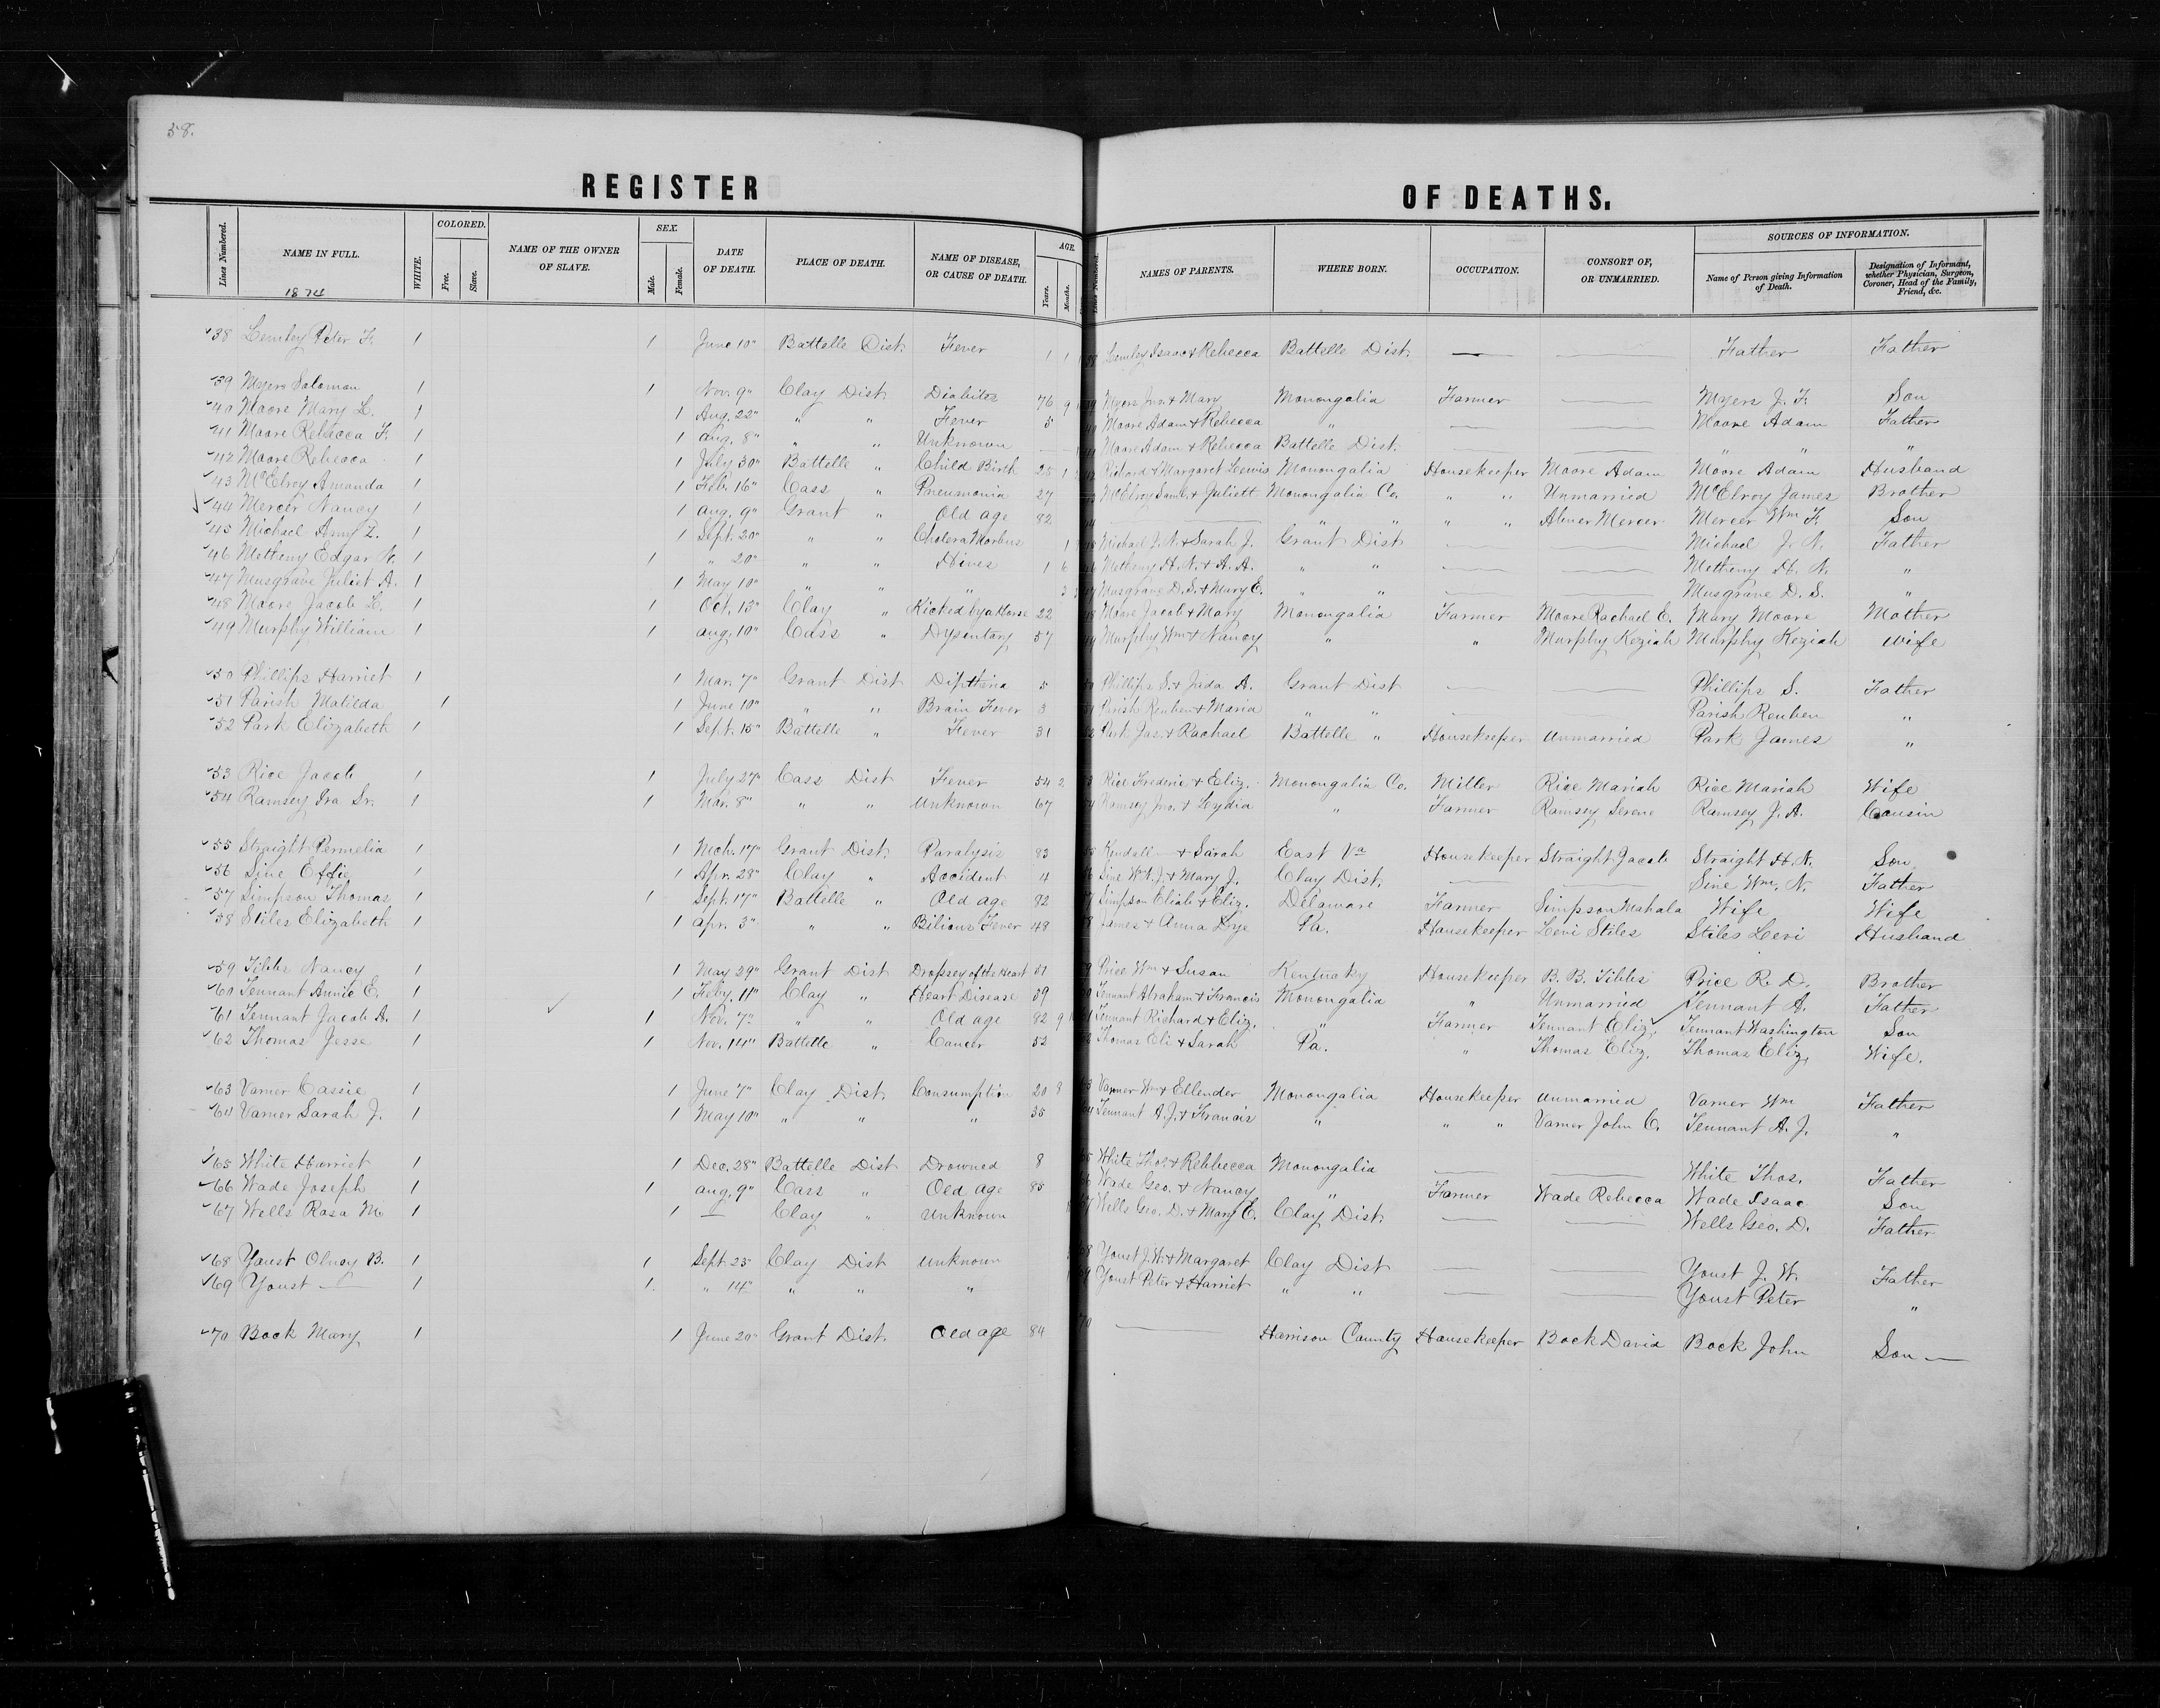 58.
REGISTER OF DEATHS.
Lines Numbered. NAME IN FULL. WHITE. COLORED. Free. Slave. NAME OF THE OWNER OF SLAVE. SEX. Male. Female. DATE OF DEATH. PLACE OF DEATH. NAME OF DISEASE, OR CAUSE OF DEATH. AGE. Years. Months. Lines Numbered. NAMES OF PARENTS. WHERE BORN. OCCUPATION. CONSORT OF, OR UNMARRIED. SOURCES OF INFORMATION. Name of Person giving Information of Death. Designation of Informant, whether Physician, Surgeon, Coroner, Head of the Family, Friend, &c.
1874
38 Lemley Peter F. 1 1 June 10" Battelle Dist. Fever 1 1 Lemley Isaac & Rebecca Battelle Dist. — — Father Father
39 Myers Salomon 1 1 Nov. 9" Clay Dist. Diabites 76 9 Myers Jno. & Mary Monongalia Farmer — Myers J. F. Son
40 Moore Mary L. 1 1 Aug. 22" " " Fever 5 Moore Adam & Rebecca " — — Moore Adam Father
41 Moore Rebecca F. 1 1 Aug. 8" " " Unknown — Moore Adam & Rebecca Battelle Dist. — — " " "
42 Moore Rebecca 1 1 July 30" Battelle " Child Birth 25 1 Richard & Margaret Lewis Monongalia Housekeeper Moore Adam Moore Adam Husband
43 McElroy Amanda 1 1 Feb. 16" Cass " Pneumonia 27 McElroy Saml. & Juliett Monongalia Co. " " Unmarried McElroy James Brother
44 Mercer Nancy 1 1 Aug. 9" Grant " Old age 82 — " " " " Abner Mercer Mercer Wm F. Son
45 Michael Amy Z. 1 1 Sept. 20" " " Cholera Morbus 1 Michael J. N. & Sarah J. Grant Dist — — Michael J. N. Father
46 Metheny Edgar N. 1 1 " 20" " " Hives 1 6 Metheny H. N. & A. A. " " — — Metheny H. N. "
47 Musgrave Juliet A. 1 1 May 10" " " " 3 Musgrave D. S. & Mary E. " " — — Musgrave D. S. "
48 Moore Jacob L. 1 1 Oct. 13" Clay " Kicked by a Horse 22 Moore Jacob & Mary Monongalia Farmer Moore Rachael E. Mary Moore Mother
49 Murphy William 1 1 Aug. 10" Cass " Dysentary 57 Murphy Wm & Nancy " " Murphy Keziah Murphy Keziah Wife
50 Phillips Harriet 1 1 Mar. 7" Grant Dist Diptheria 5 Phillips S. & Juda A. Grant Dist — — Phillips S. Father
51 Parish Matilda 1 1 June 10" " " Brain Fever 3 Parish Reuben & Maria " " — — Parish Reuben "
52 Park Elizabeth 1 1 Sept. 15" Battelle " Fever 31 Park Jas. & Rachael Battelle " Housekeeper Unmarried Park James "
53 Rice Jacob 1 1 July 27" Cass Dist Fever 54 2 Rice Frederic & Eliz. Monongalia Co. Miller Rice Mariah Rice Mariah Wife
54 Ramsey Ira Sr. 1 1 Mar. 8" " " Unknown 67 Ramsey Jno. & Lydia " Farmer Ramsey Serene Ramsey J. A. Cousin
55 Straight Permelia 1 1 Mch. 17" Grant Dist. Paralysis 83 Kendall — & Sarah East Va Housekeeper Straight Jacob Straight H. N. Son
56 Sine Effie 1 1 Apr. 28" Clay " Accident 4 Sine W. J. & Mary J. Clay Dist. — — Sine Wm. N. Father
57 Simpson Thomas 1 1 Sept. 17" Battelle " Old age 82 Simpson Eliab & Eliz. Delaware Farmer Simpson Mahala Wife Wife
58 Stiles Elizabeth 1 1 Apr. 3" " " Bilious Fever 48 James & Anna Dye Pa. Housekeeper Levi Stiles Stiles Levi Husband
59 Tibbs Nancy 1 1 May 29" Grant Dist Dropsey of the Heart 51 Price Wm & Susan Kentucky Housekeeper B. B. Tibbs Price R. D. Brother
60 Tennant Annie E. 1 1 Feby. 11" Clay " Heart Disease 39 Tennant Abraham & Francis Monongalia " Unmarried Tennant A. Father
61 Tennant Jacob A. 1 1 Nov. 7" " " Old age 82 9 Tennant Richard & Eliz. " Farmer Tennant Eliz. Tennant Washington Son
62 Thomas Jesse 1 1 Nov. 14" Battelle " Cancer 52 Thomas Eli & Sarah Pa. " Thomas Eliz. Thomas Eliz. Wife.
63 Varner Cassie 1 1 June 7" Clay Dist. Consumption 20 8 Varner Wm & Ellender Monongalia Housekeeper Unmarried Varner Wm Father
64 Varner Sarah J. 1 1 May 10" " " " 35 Tennant A. J. & Francis " " " Varner John C. Tennant A. J. "
65 White Harriet 1 1 Dec. 28" Battelle Dist Drowned 8 White Thos. & Rebbecca Monongalia — — White Thos. Father
66 Wade Joseph 1 1 Aug. 9" Cass " Old age 85 Wade Geo. & Nancy " Farmer Wade Rebecca Wade Isaac Son
67 Wells Rosa M. 1 1 — Clay " Unknown Wells Geo. D. & Mary E. Clay Dist. — — Wells Geo. D. Father
68 Youst Olncy B. 1 1 Sept 25 Clay Dist Unknown Youst J. W. & Margaret Clay Dist — — Youst J. W. Father
69 Youst — 1 1 " 14" " " " Youst Peter & Harriet " " — — Youst Peter "
70 Bock Mary 1 1 June 20" Grant Dist. Old age 84 70 — Harrison County Housekeeper Bock David Bock John Son —